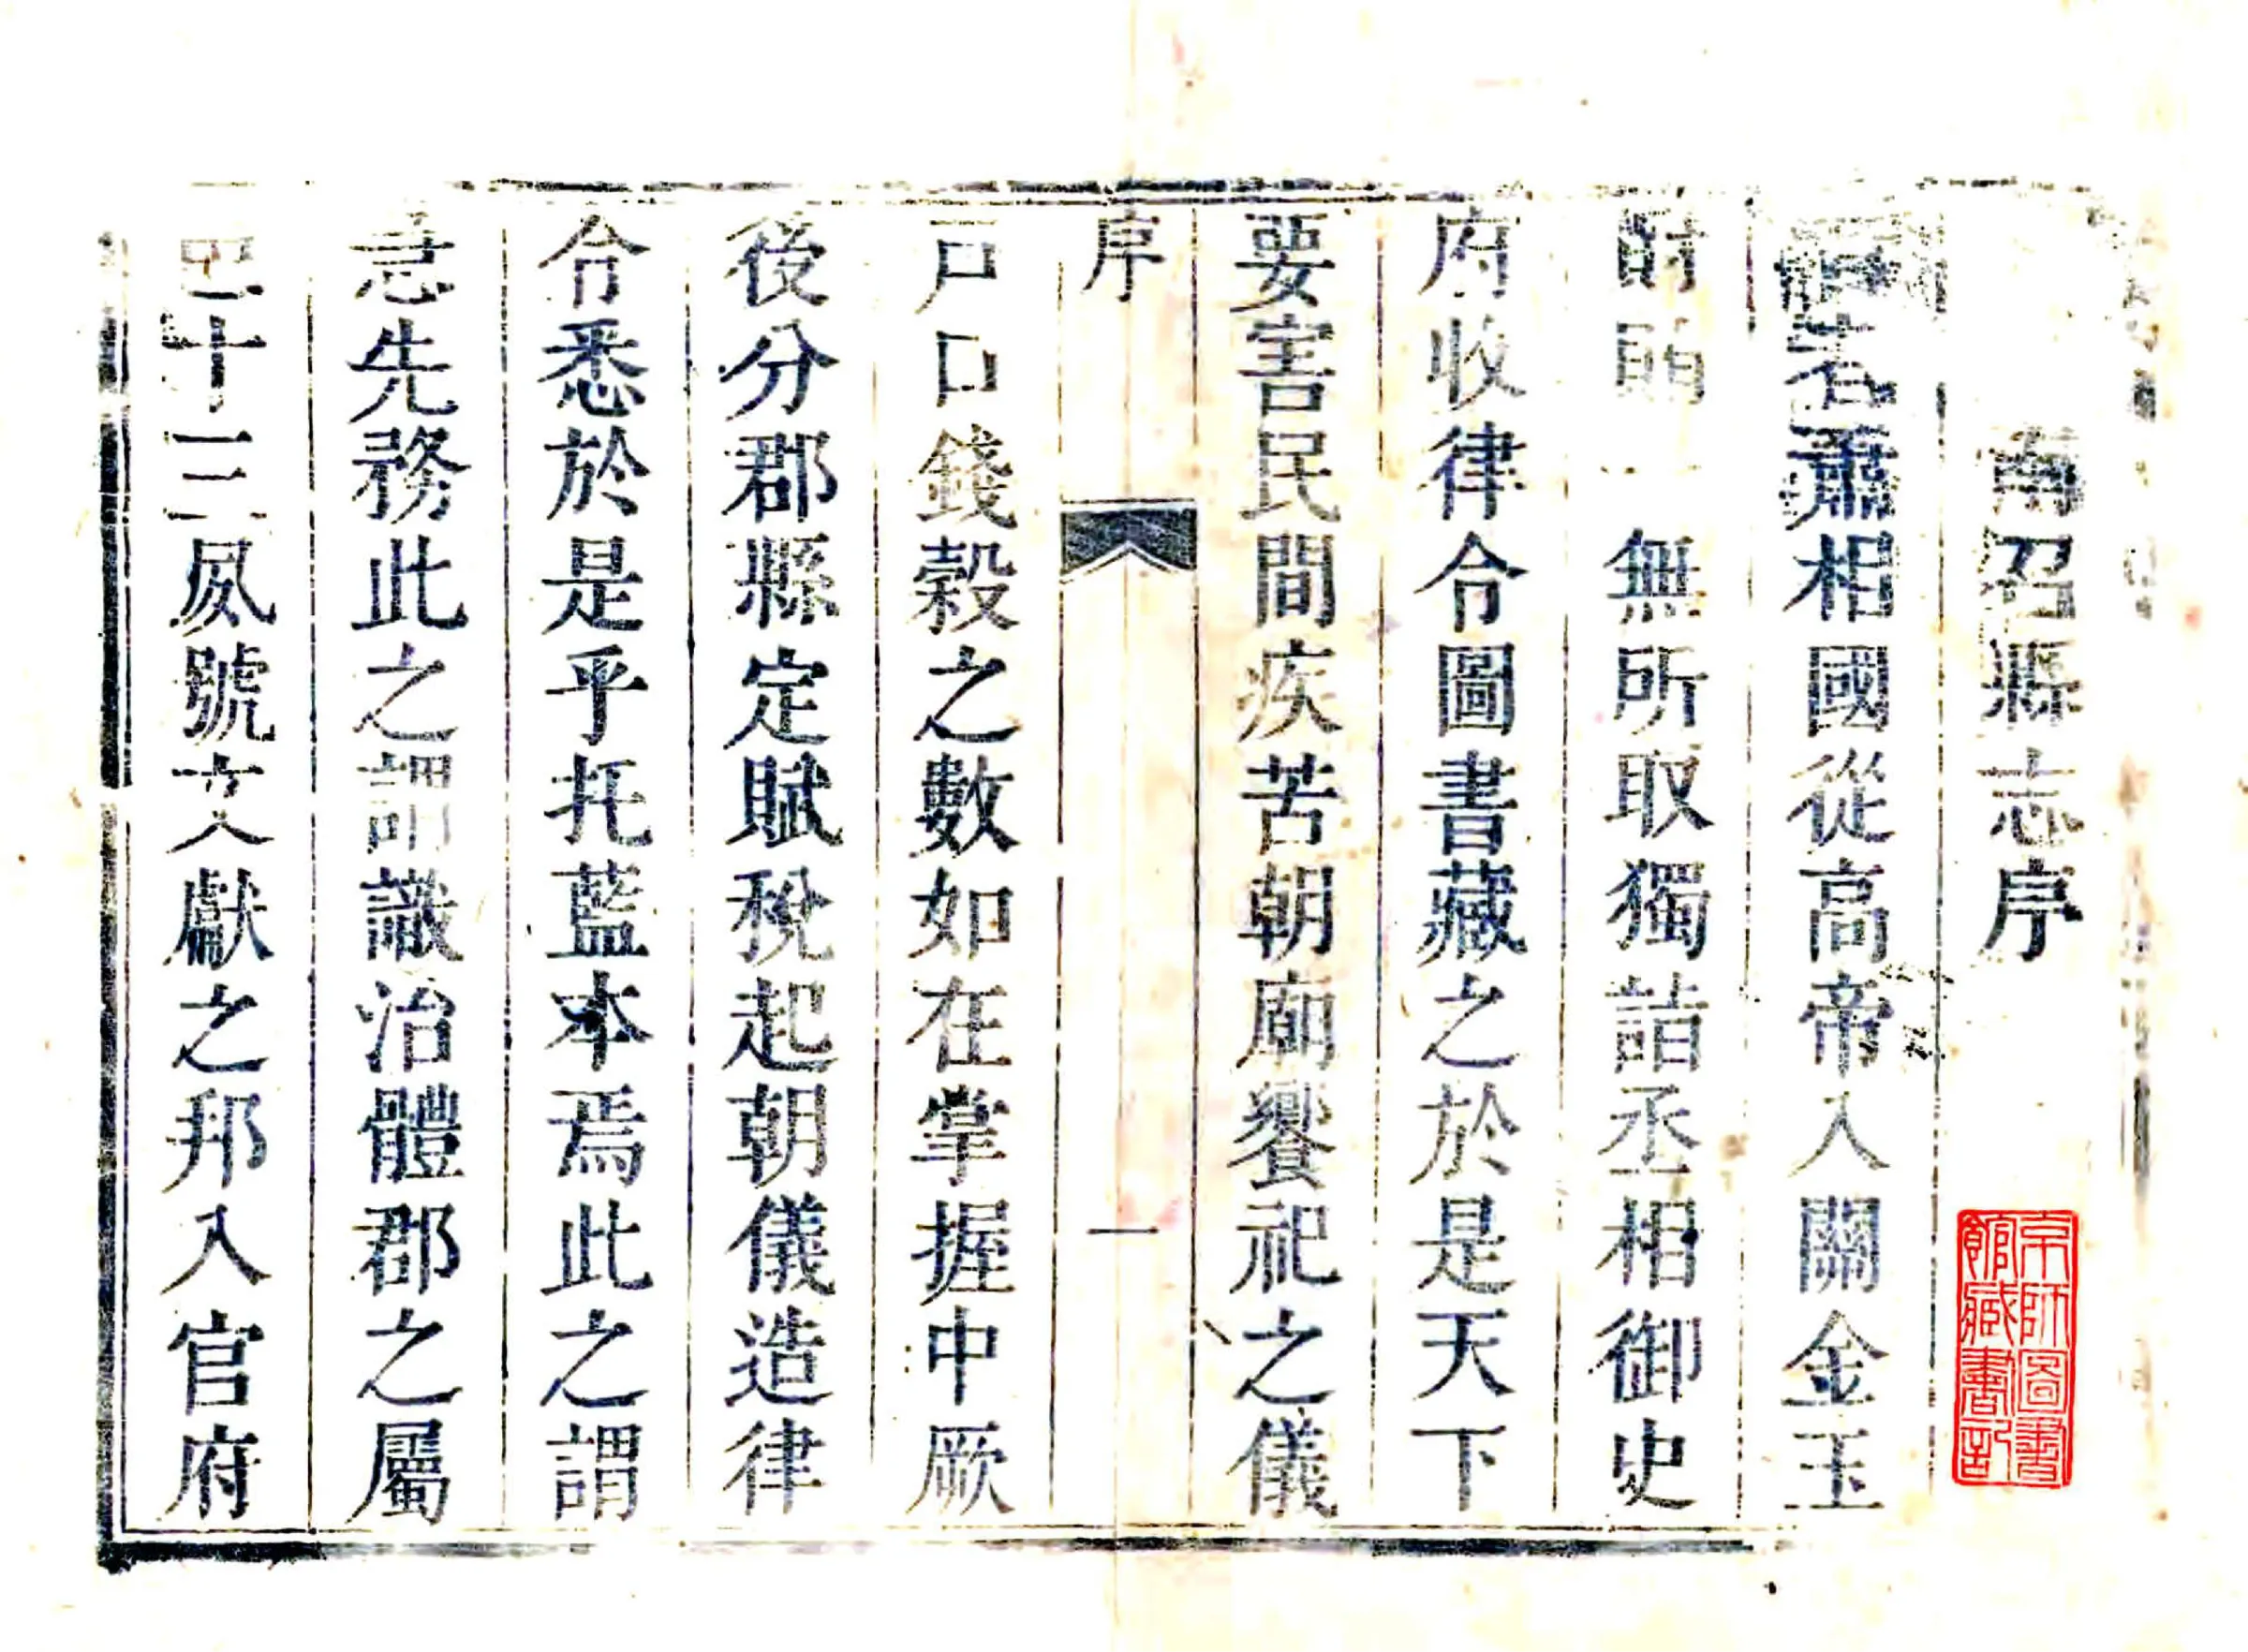 南召縣志序
蕭相國從高帝入關金玉
財賄一無所取獨詣丞相御史
府收律令圖書藏之於是天下
要害民間疾苦朝廟饗祀之儀
序 一
戶口錢穀之數如在掌握中厥
後分郡縣定賦稅起朝儀造律
令悉於是乎托藍本焉此之謂
急先務此之謂識治體郡之屬
邑十三夙號文獻之邦入官府
京師圖書
館藏書記